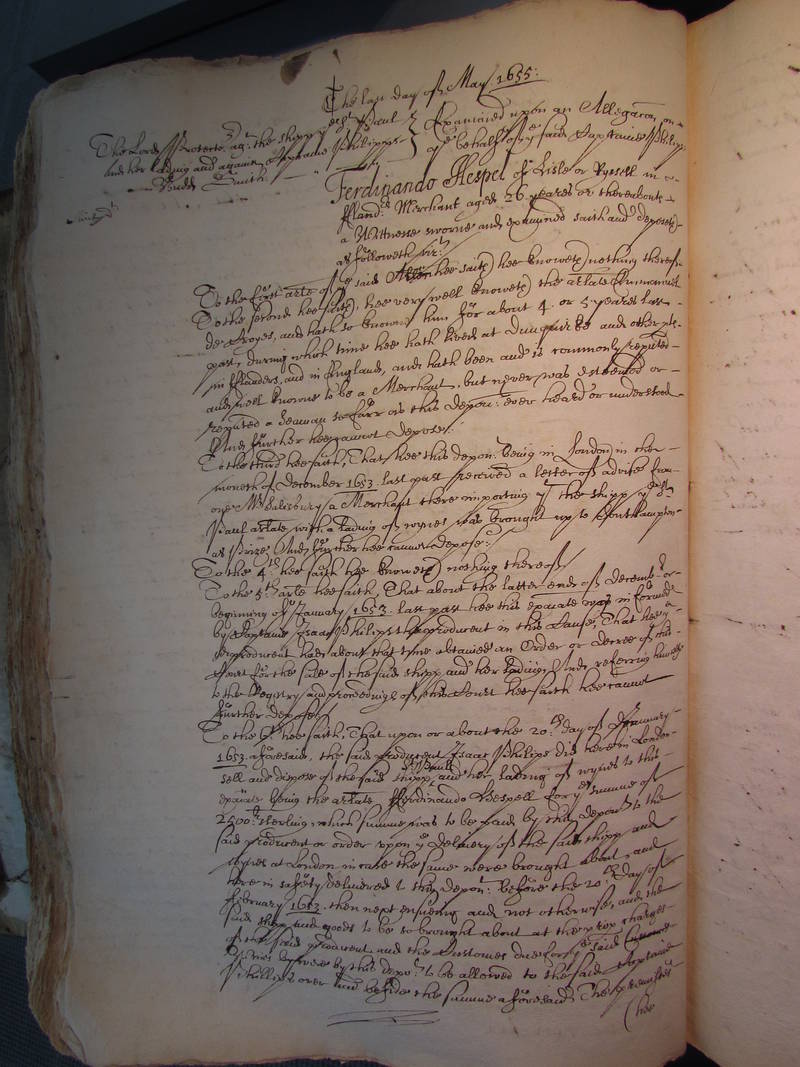 The last day of May. 1655:
The Lord Protector agt. the shipp ye St. Paul
and her lading and against Captaine Phillipps
Smith
Examined upon an Allegacon on
ye behalfe of ye said Captaine Phillips
Ferdinando Hespel of Lisle or Ryssell in
fflandrs Merchant aged 26 yeares or thereabouts
a Wittnesse sworne and examined saith and deposeth
as followeth vizt.
To the first arle of ye said Allon hee saith hee knoweth nothing thereof
To the second hee saith, hee very well knoweth the arlate Emmanuel
de Froyes, and hath so knowne him for about 4. or 5 yeares last
past, during which time hee hath lived at Dunquirke and other pts.
in fflanders, and in England, and hath been and is commonly reputed
and well knowne to be a Merchant, but never was esteemed or
reputed a Seaman so farr as this depont. ever heard or understood
And further hee cannot depose./
To the third hee saith, That hee this depont. being in London in the
moneth of December 1653. last past received a letter of advise from
one Mr Salisbury a Merchant there importing yt the shipp ye St
Paul arlate with a lading of wynes was brought up to Southampton
as Prize. And further hee cannot depose./
To the 4th. hee saith hee knoweth nothing thereof
To the 5th arle hee saith, That about the latter end of Decembr. or
beginning of January 1653. last past hee this exaiate was informed
by Captaine Isaac Philips the producent in this Cause, That hee ye
producent had about that time obtained an Order or decree of this
Court for the sale of the said shipp and her lading, And referring himselfe
to the Registry and proceedings of this Court hee saith hee cannot
further depose
To the 6th. hee saith, That upon or about the 20th. day of January
1653. aforesaid, the said producent Isaac Philips did here in London
sell and dispose of the said shipp St. Paul and her lading of wynes to this
exaiate being the arlate Ferdinando Hespell for ye summe of
2500 li sterling, which summe was to be paid by this deponent to the
said producent or order upon ye delivery of the said shipp and
wynes at London in case the same were brought about, and
here in safety delivered to this depont. before the 20th day of
February 1653. then next ensueing and not otherwise, and the
said shipp and goods to be so brought about at the prop charges
of the said producent and the Customes due for ye said
were by this depont. to be allowed to the said Captaine
Phillips over and beside the summe aforesaid. The premisses
(hee